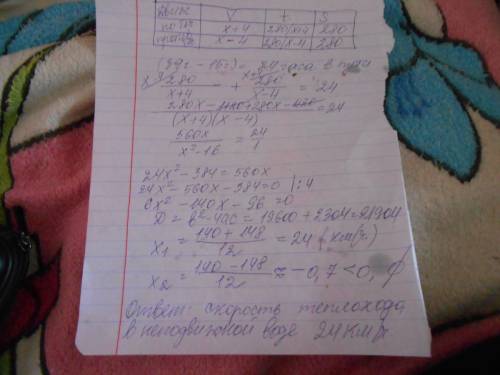 V t S
по теч. x+4 280/x+4 280
x-4 280/x-4 280
(39ч - 15ч) = 24 часа в пути
280/x+4 + 280/x-4 = 24
280x - 1120 + 280x - =24
(x+4)(x-4)
560x/x²-16 = 24/1
24x² - 384 = 560x
24x² - 560x - 384 = 0 |:4
6x² - 140x - 96 = 0
D = b² - 4ac = 19600 + 2304 = 21904
x₁ = 140 + 148/12 = 24 (км/ч)
x₂ = 140 - 148/12 ≈ -0,7 < 0, ∅
Ответ: скорость теплохода
в неподвижной воде 24 км/ч